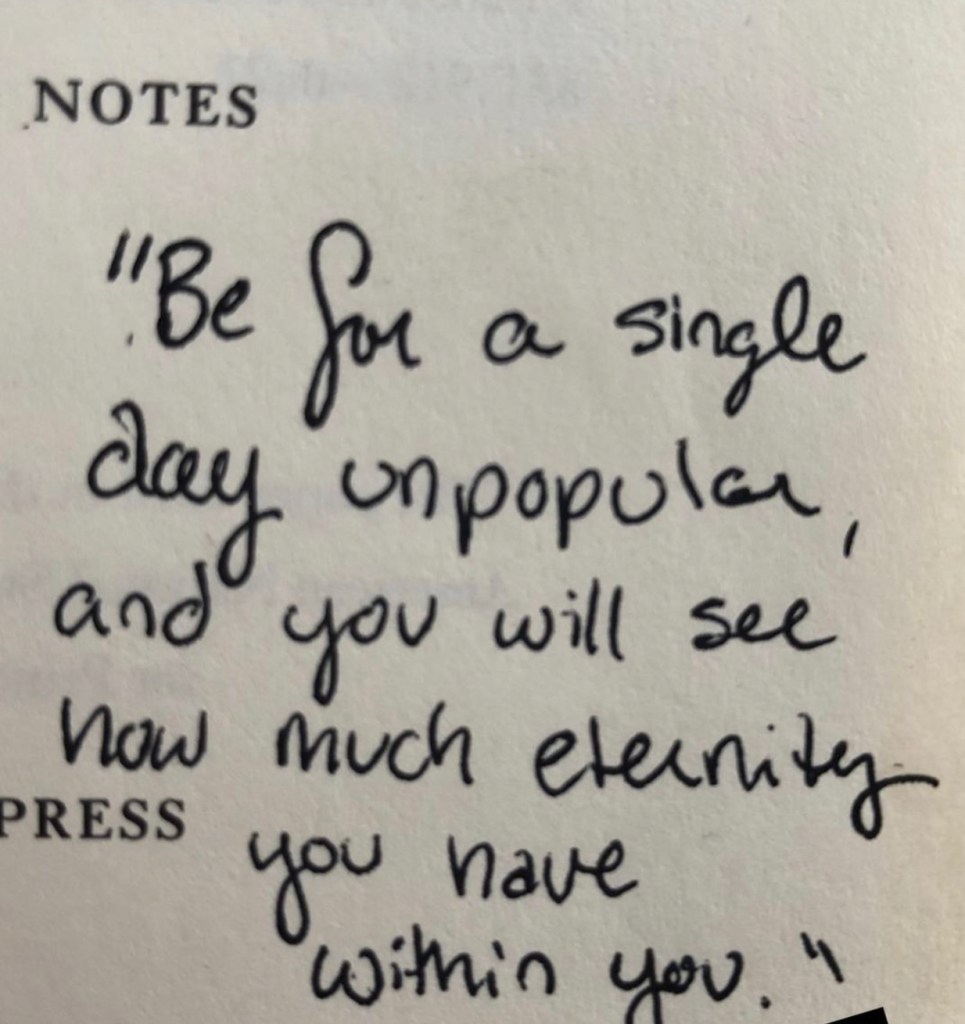 NOTES
"Be for a single
day unpopular,
and you will see
how much eternity
PRESS
you have
within you."